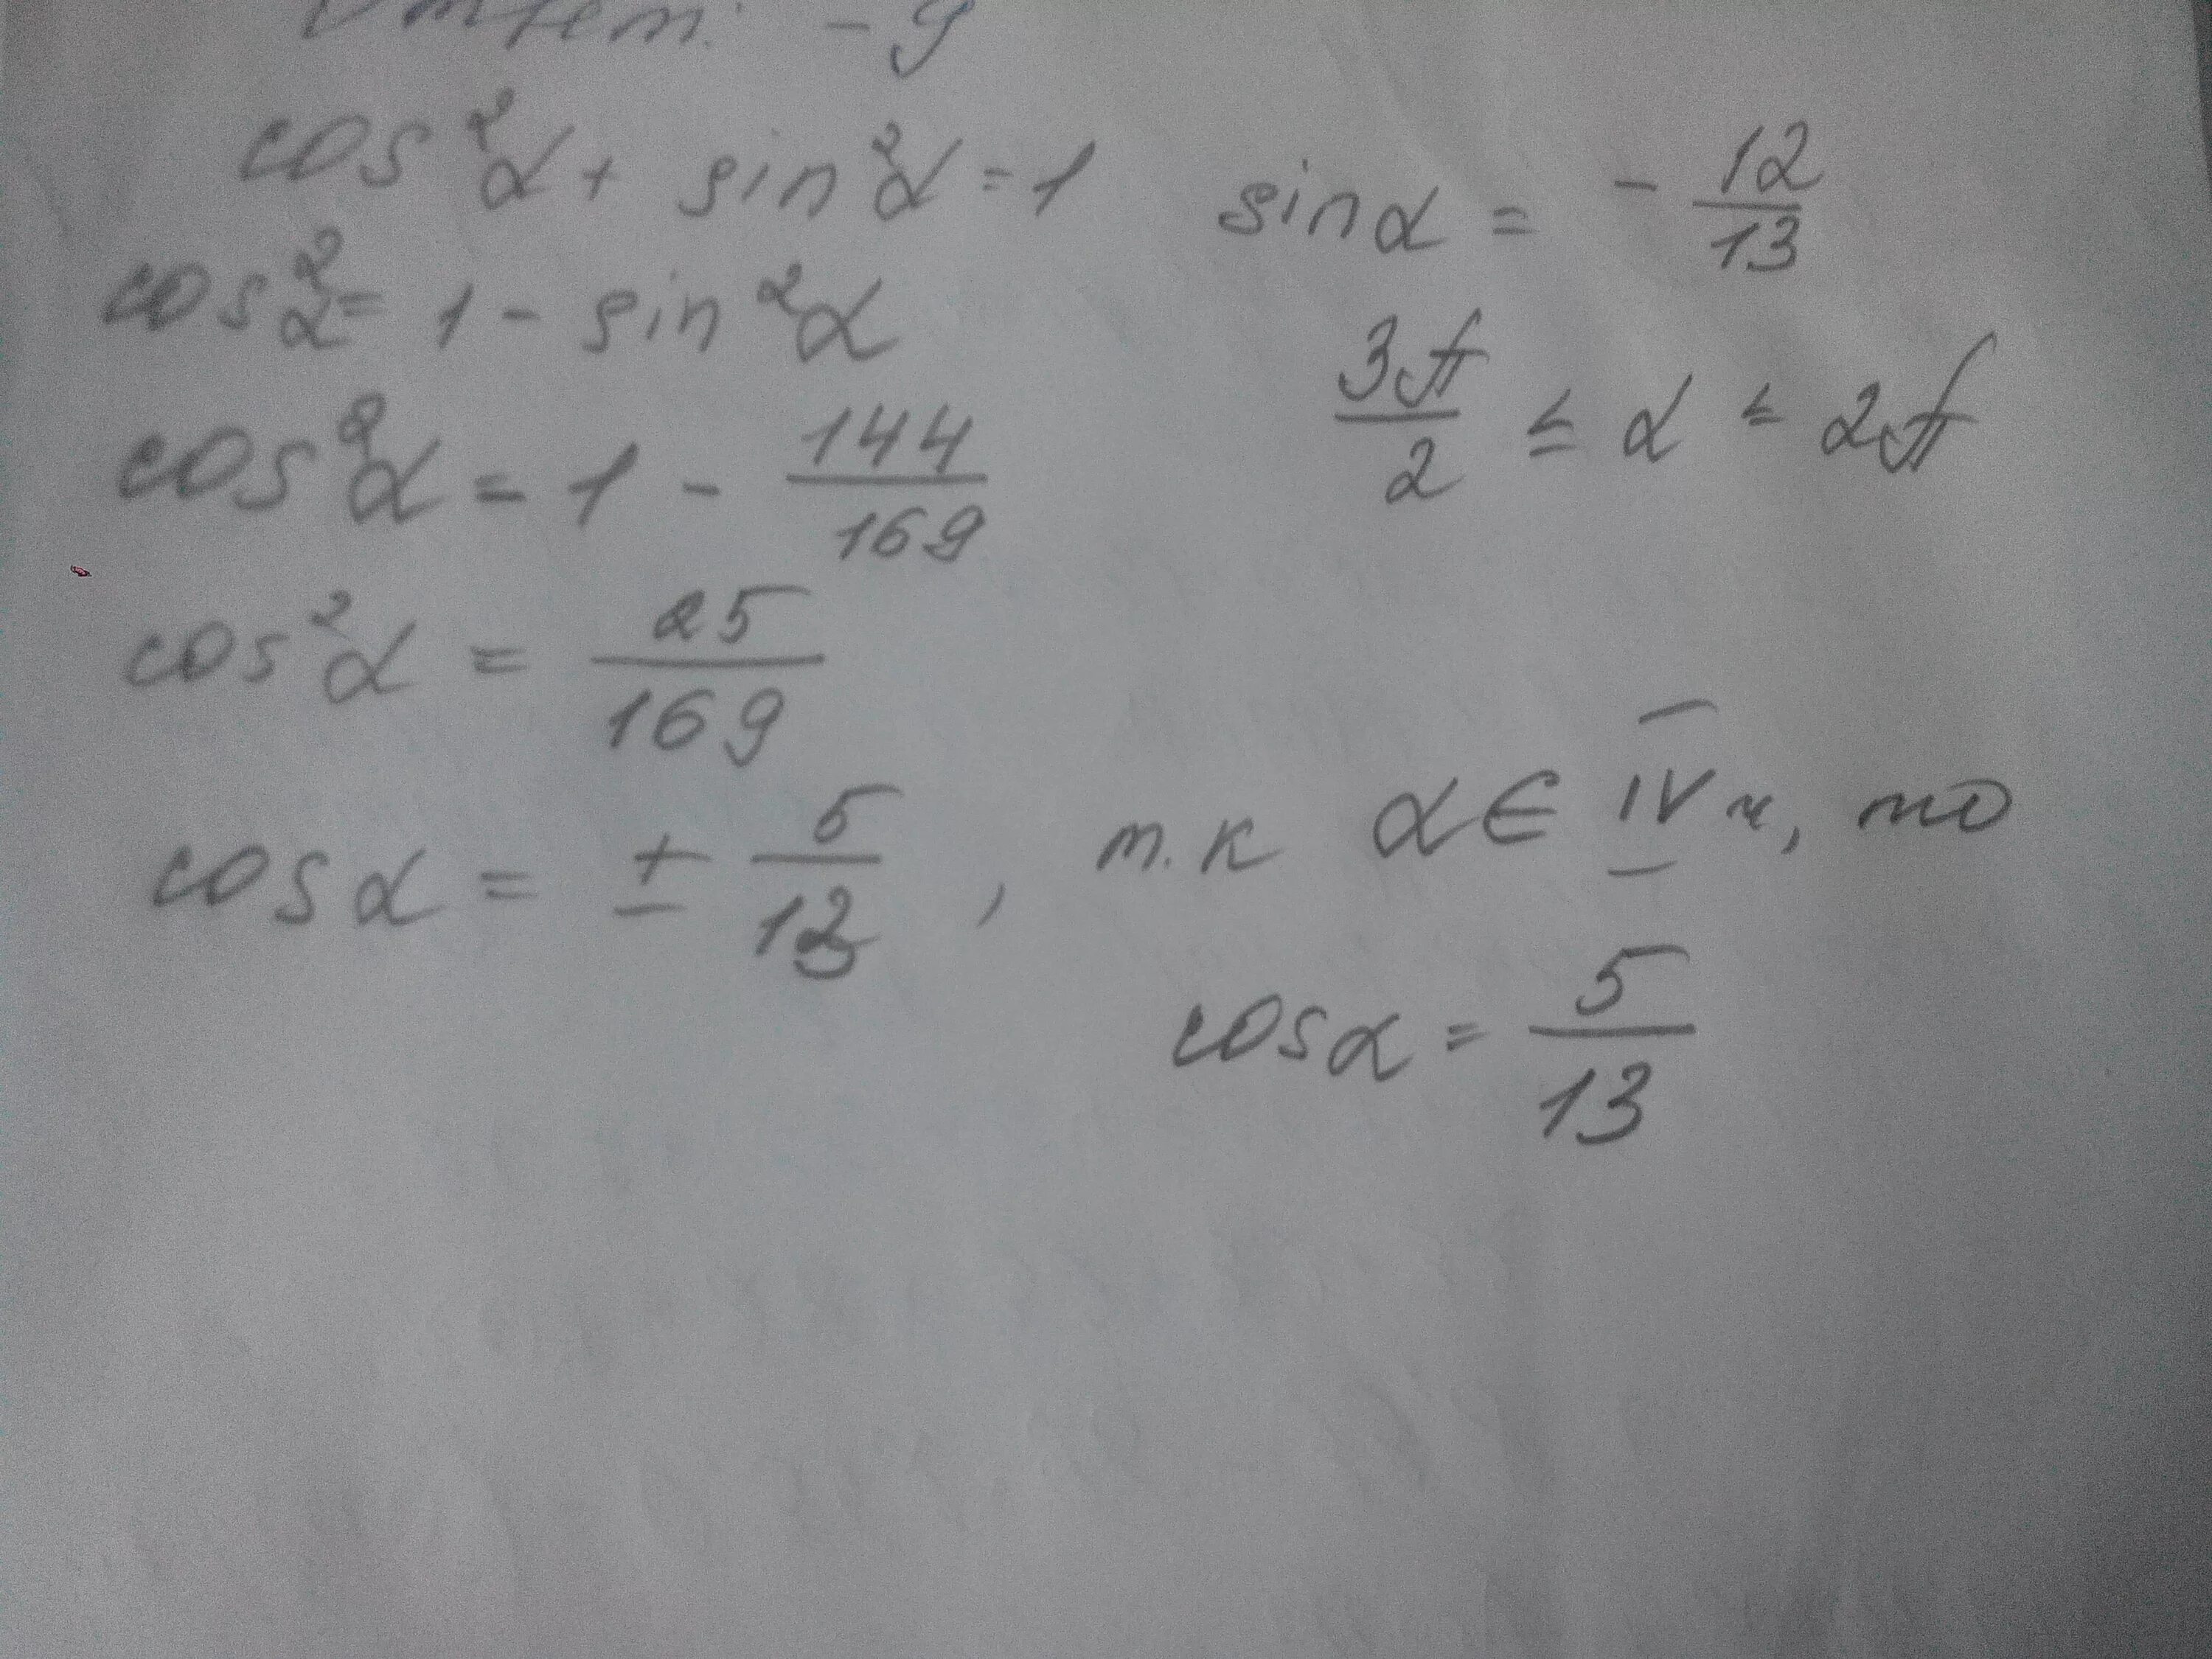 Ответ: -9
cos²α + sin²α = 1
sinα = - 12/13
cos²α = 1 - sin²α
3π/2 ≤ α ≤ 2π
cos²α = 1 - 144/169
cos²α = 25/169
cosα = ± 5/13, т.к α ∈ IV ч, то
cosα = 5/13